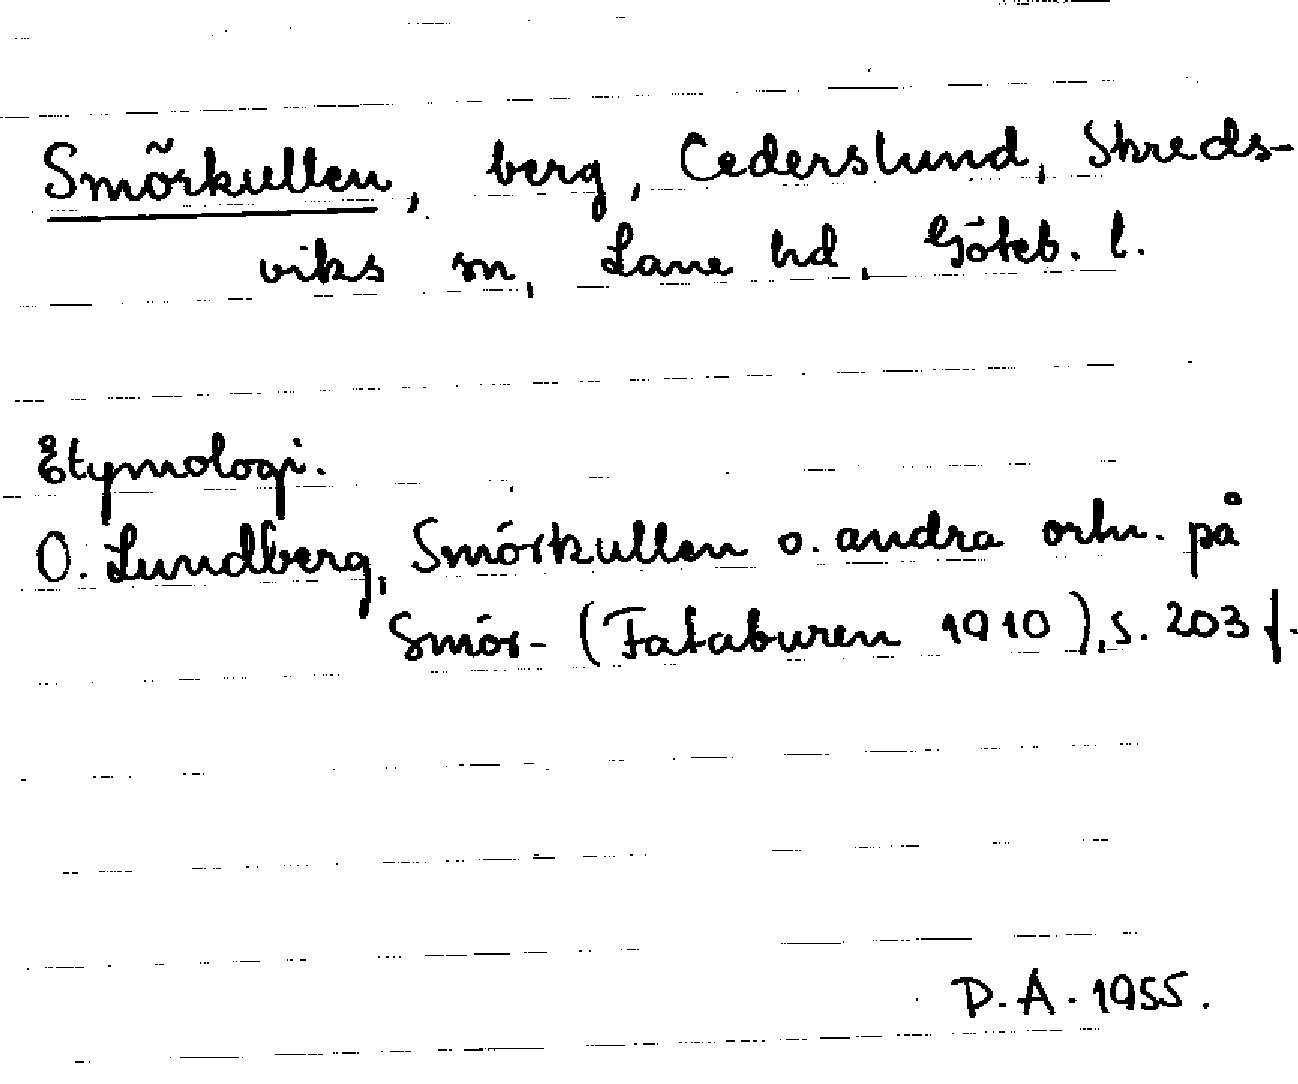 Smörkullen, berg, Cederslund, Skreds-
viks sn, Lane hd, Göteb. l.
Etymologi.
O. Lundberg, Smörkullen o. andra ortn. på
Smör- (Fataburen 1910), s. 203 f.
D. A. 1955.